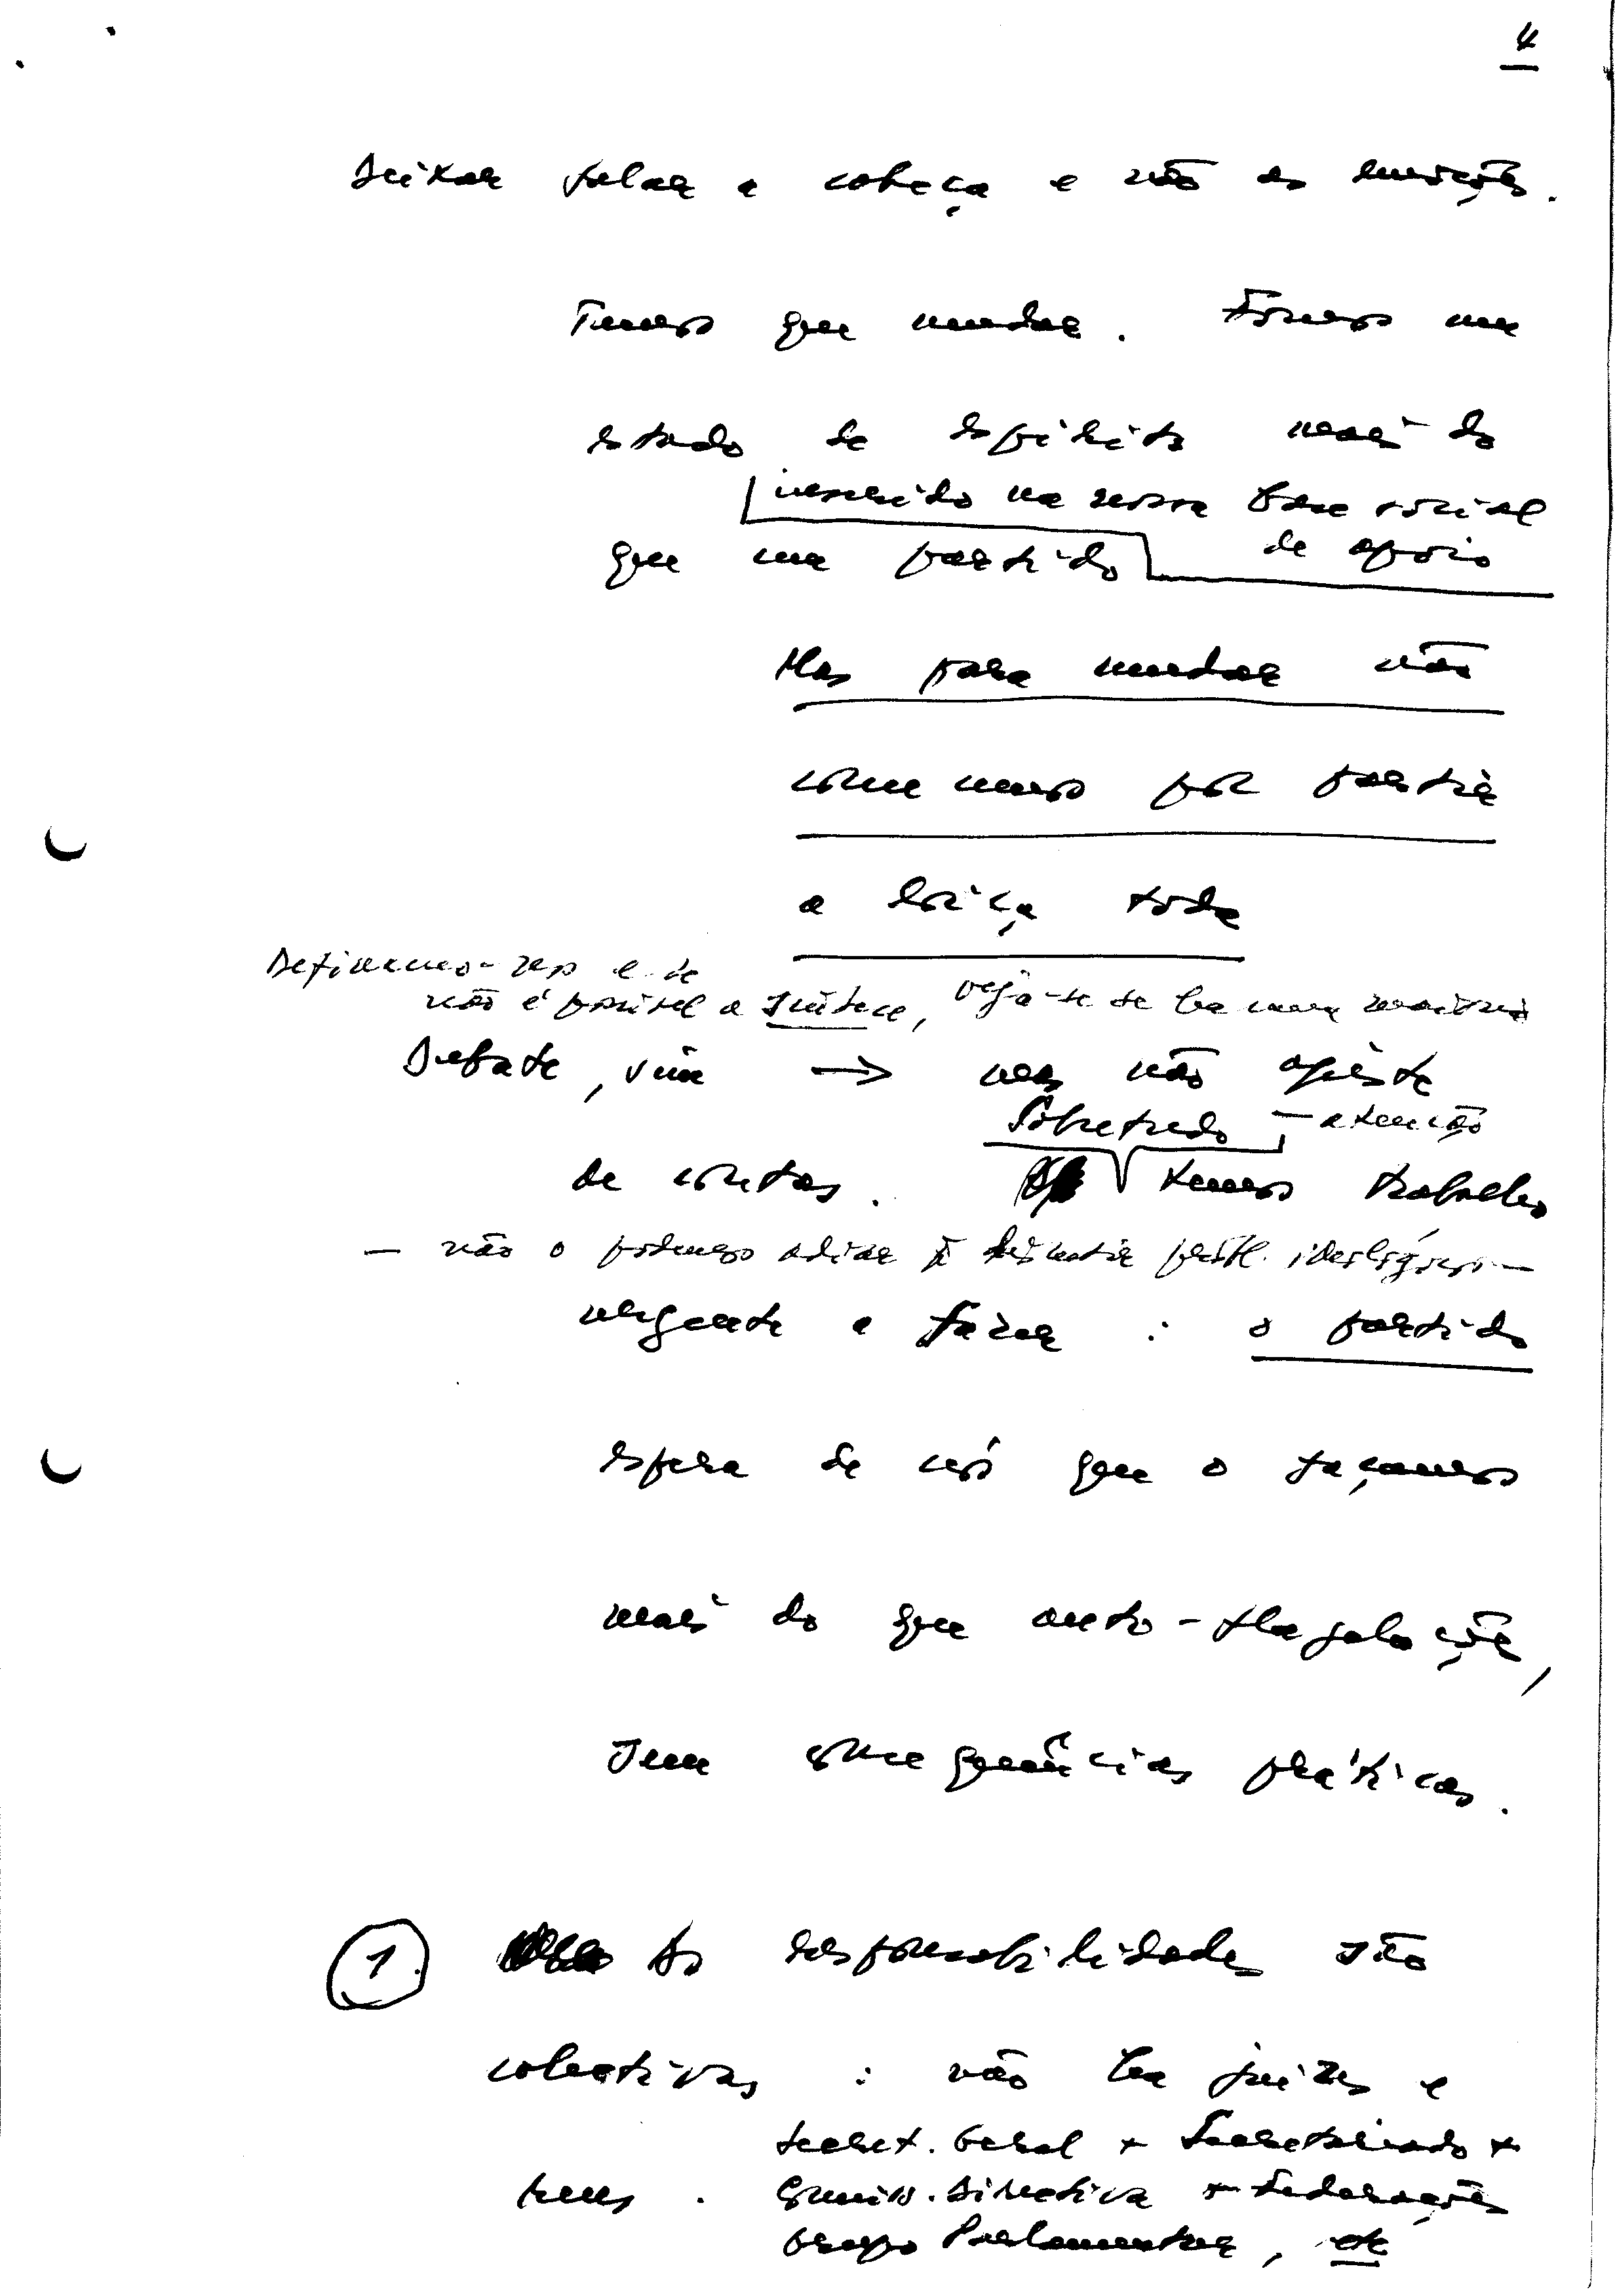 4
Deixar falar a cabeça e não as emoções.
Temos que mudar. Somos um
estado de espírito mais do
inserido na nossa base social
que um partido de apoio
Mas para mudar não
comecemos por partir
a loiça toda
Definamo-nos e se
não é possível a síntese, veja-se se há uma maioria
Debate, sim → mas não ajuste
Sobretudo — atenção
de contas. temos trabalho
— não o podemos adiar discutir ideológicos —
urgente a fazer : o partido
espera de nós que o façamos
mais do que auto-flagelação,
sem consequências práticas.
1 As responsabilidades são
colectivas : não há juízes e
Secret. Geral + Secretariado +
réus . Comiss. Directiva + Federações
Grupo Parlamentar, etc